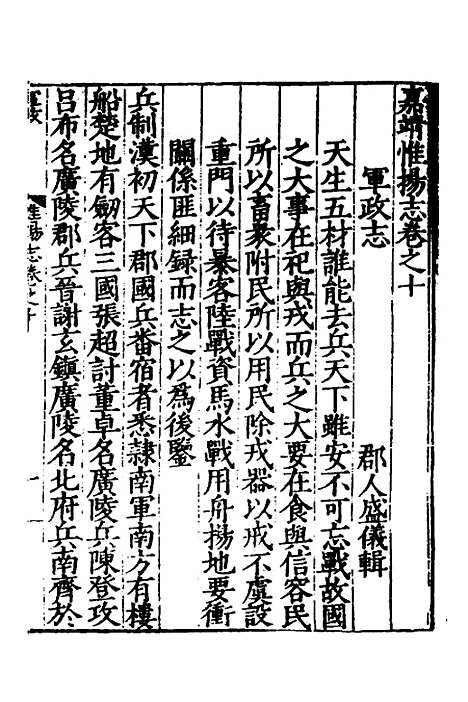 嘉靖惟揚志卷之十
軍政志
郡人盛儀輯
天生五材誰能去兵天下雖安不可忘戰故國
之大事在祀與戎而兵之大要在食與信容民
所以畜衆附民所以用民除戎器以戒不虞設
重門以待暴客陸戰資馬水戰用舟揚地要衝
關係匪細録而志之以爲後鑒
兵制漢初天下郡國兵番宿者悉隷南軍南方有樓
船楚地有劒客三國張超討董卓名廣陵兵陳登攻
呂布名廣陵郡兵晉謝玄鎮廣陵名北府兵南齊於
軍政
惟揚志卷之十
一